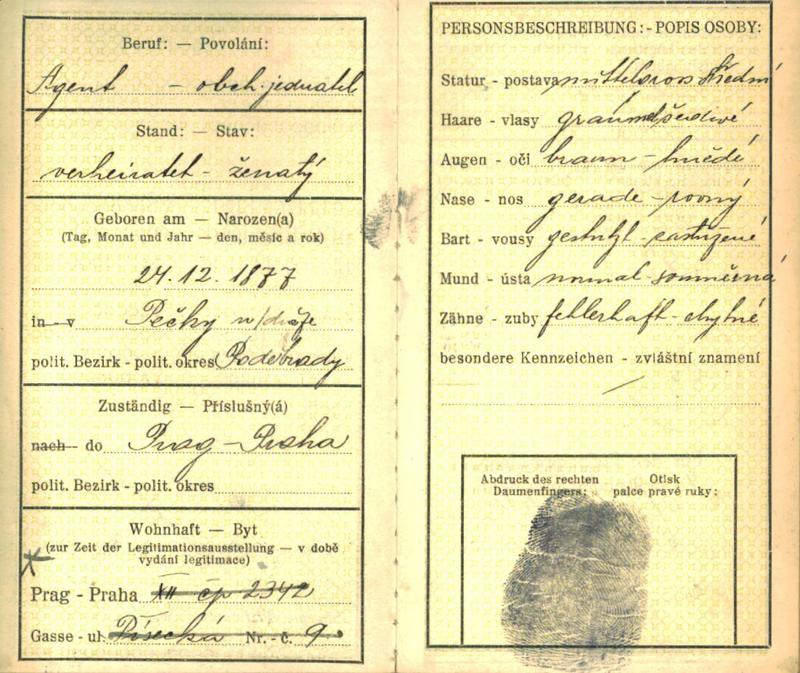 Beruf: — Povolání:
Agent — obch. jednatel
Stand: — Stav:
verheiratet - ženatý
Geboren am — Narozen(a)
(Tag, Monat und Jahr — den, měsíc a rok)
24. 12. 1877
in - v Pečky n/dráze
polit. Bezirk - polit. okres Poděbrady
Zuständig — Příslušný(á)
nach - do Prag - Praha
polit. Bezirk - polit. okres
Wohnhaft — Byt
(zur Zeit der Legitimationsausstellung — v době
vydání legitimace)
Prag - Praha XII čp 2342
Gasse - ul. Písecká Nr. - č. 9
PERSONSBESCHREIBUNG: - POPIS OSOBY:
Statur - postava mittelgross střední
Haare - vlasy šedivé
Augen - oči braun - hnědé
Nase - nos gerade - rovný
Bart - vousy gestutzt - zastřižené
Mund - ústa normal - souměrná
Zähne - zuby fehlerhaft - chybné
besondere Kennzeichen - zvláštní znamení
Abdruck des rechten Daumenfingers:
Otisk palce pravé ruky: